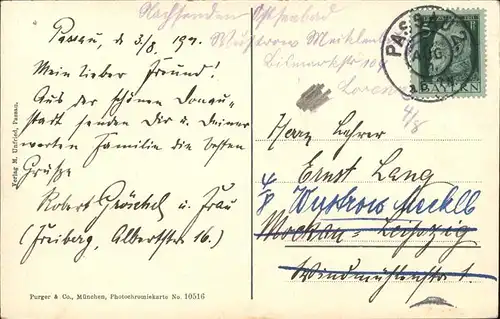 Nachsenden Ostseebad
Wustrow Mecklen
Bismarckstr 10
Passau, d 3/8, 191.
Mein lieber Freund!
Aus der schönen Donau-
stadt senden Dir u. Deiner
werten Familie die besten
Grüße
Robert Gröschel u. Frau
(Freiberg, Albertstr 16.)
Verlag M. Umfried, Passau.
Purger & Co., München, Photochromiekarte No. 10516
PASSAU
BAYERN
4/8
Herrn Lehrer
Ernst Lang
4/8 Wustrow Mecklb
Mockau - Leipzig
Windmühlenstr 1.